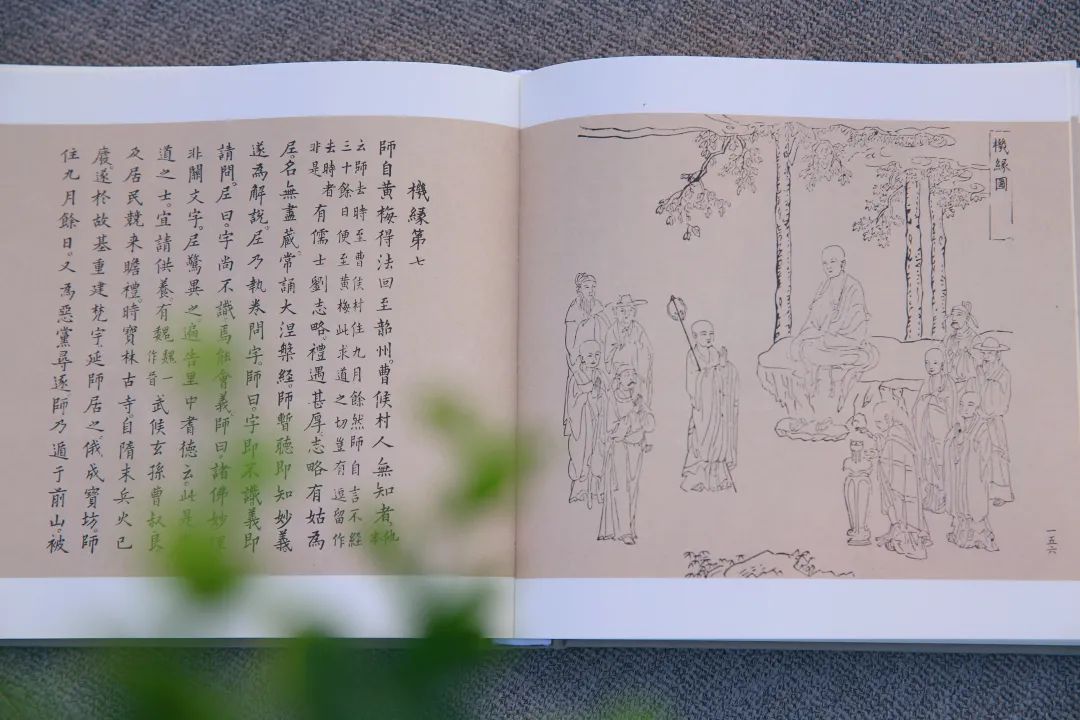 機緣圖
一五六
機緣第七
師自黃梅得法回至韶州。曹候村人無知者。他本
云師去時至曹候村住九月餘然師自言不經
三十餘日便至黃梅此求道之切豈有逗留作
去時者
非是
有儒士劉志略。禮遇甚厚。志略有姑為
尼。名無盡藏。常誦大涅槃經。師暫聽即知妙義
遂為解說。尼乃執卷問字師曰。字即不識義即
請問。尼曰。字尚不識焉能會義。師曰。諸佛妙理
非關文字。尼驚異之遍告里中耆德云。此是
道之士。宜請供養。有魏魏一作晉武候玄孫曹叔良
及居民競来瞻禮。時寶林古寺。自隋末兵火已
廢。遂於故基重建梵宇。延師居之。俄成寶坊。師
住九月餘日。又為惡黨尋逐。師乃遁于前山。被